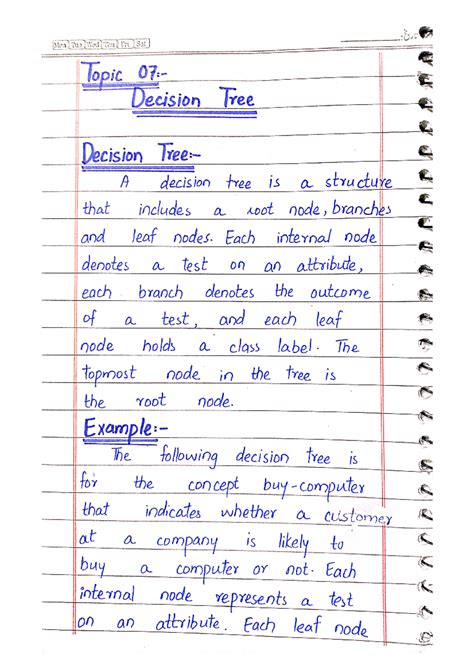 Mon Tue Wed Thu Fri Sat
Topic 07:-
Decision Tree
Decision Tree:-
A decision tree is a structure
that includes a root node, branches
and leaf nodes. Each internal node
denotes a test on an attribute,
each branch denotes the outcome
of a test, and each leaf
node holds a class label. The
topmost node in the tree is
the root node.
Example:-
The following decision tree is
for the concept buy-computer
that indicates whether a customer
at a company is likely to
buy a computer or not. Each
internal node represents a test
on an attribute. Each leaf node